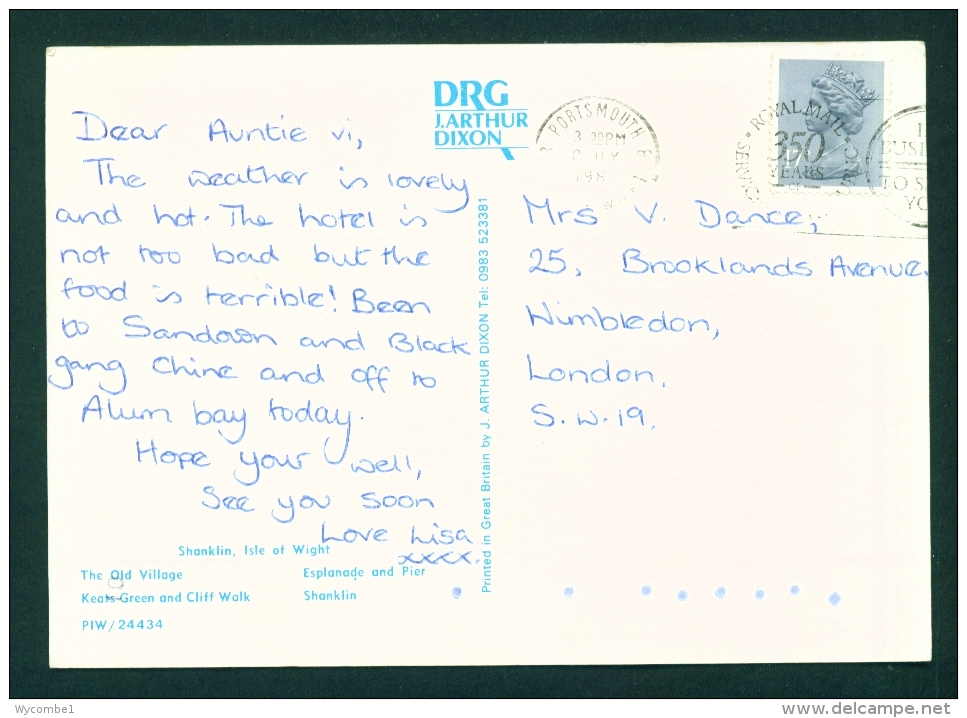 DRG
J.ARTHUR
DIXON
PORTSMOUTH
3 30PM
198
ROYAL MAIL
350
YEARS
TO
Dear Auntie Vi,
The weather is lovely
and hot. The hotel is
not too bad but the
food is terrible! Been
to Sandown and Black
gang Chine and off to
Alum bay today.
Hope your well,
See you soon
Love Lisa
xxxx.
Mrs V. Dance,
25, Brooklands Avenue.
Wimbledon,
London,
S.W.19.
Printed in Great Britain by J. ARTHUR DIXON Tel: 0983 523381
Shanklin, Isle of Wight
The Old Village
Esplanade and Pier
Keats Green and Cliff Walk
Shanklin
PIW/24434
Wycombe1
www.delcampe.net